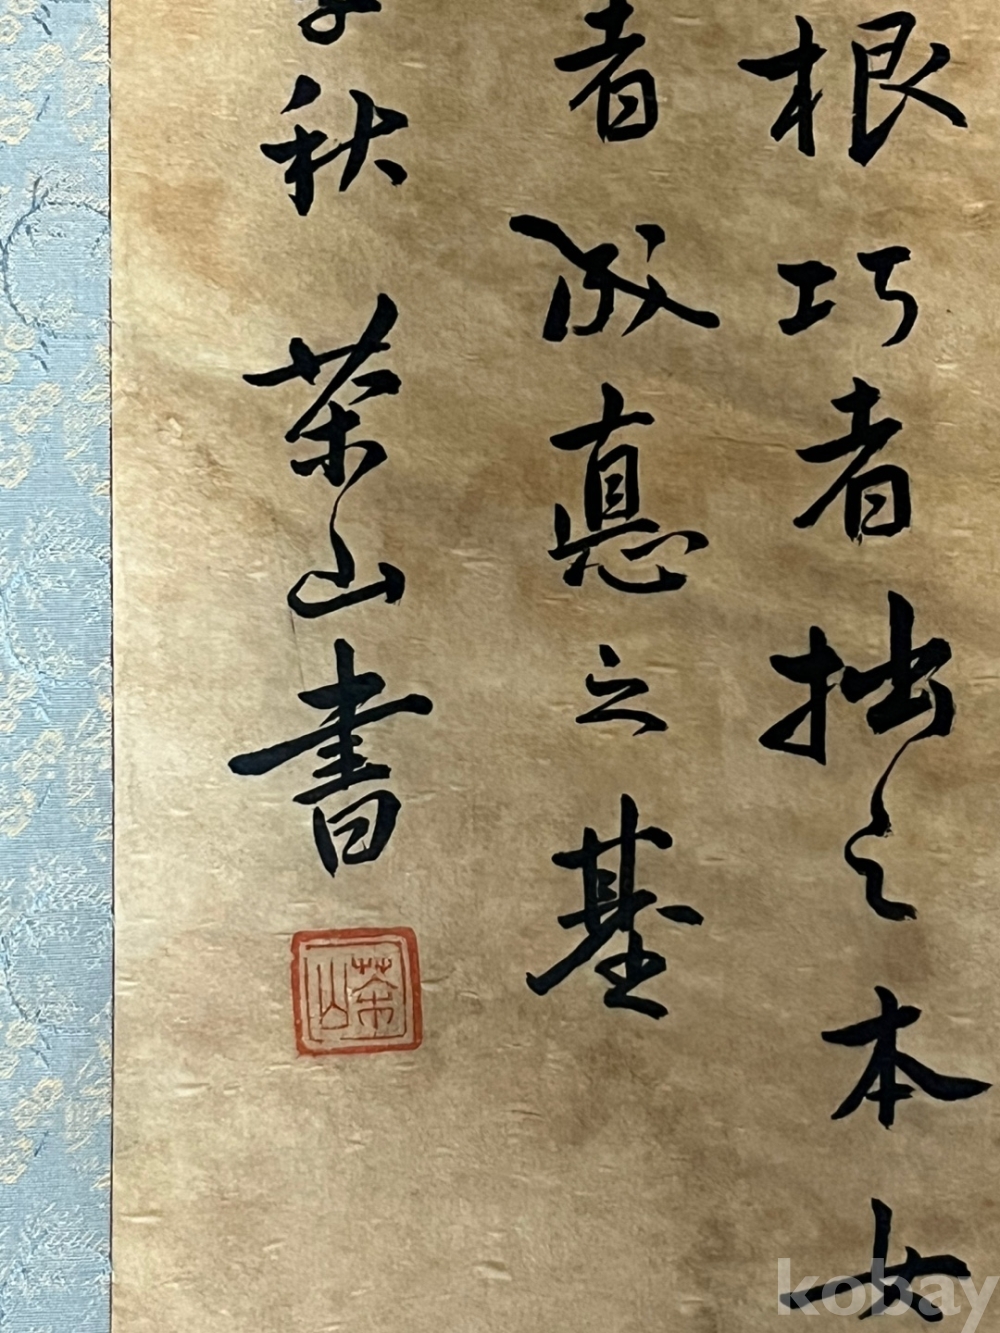 根巧者拙之本女
者成惪之基
秋 茶山書
茶山
kobay